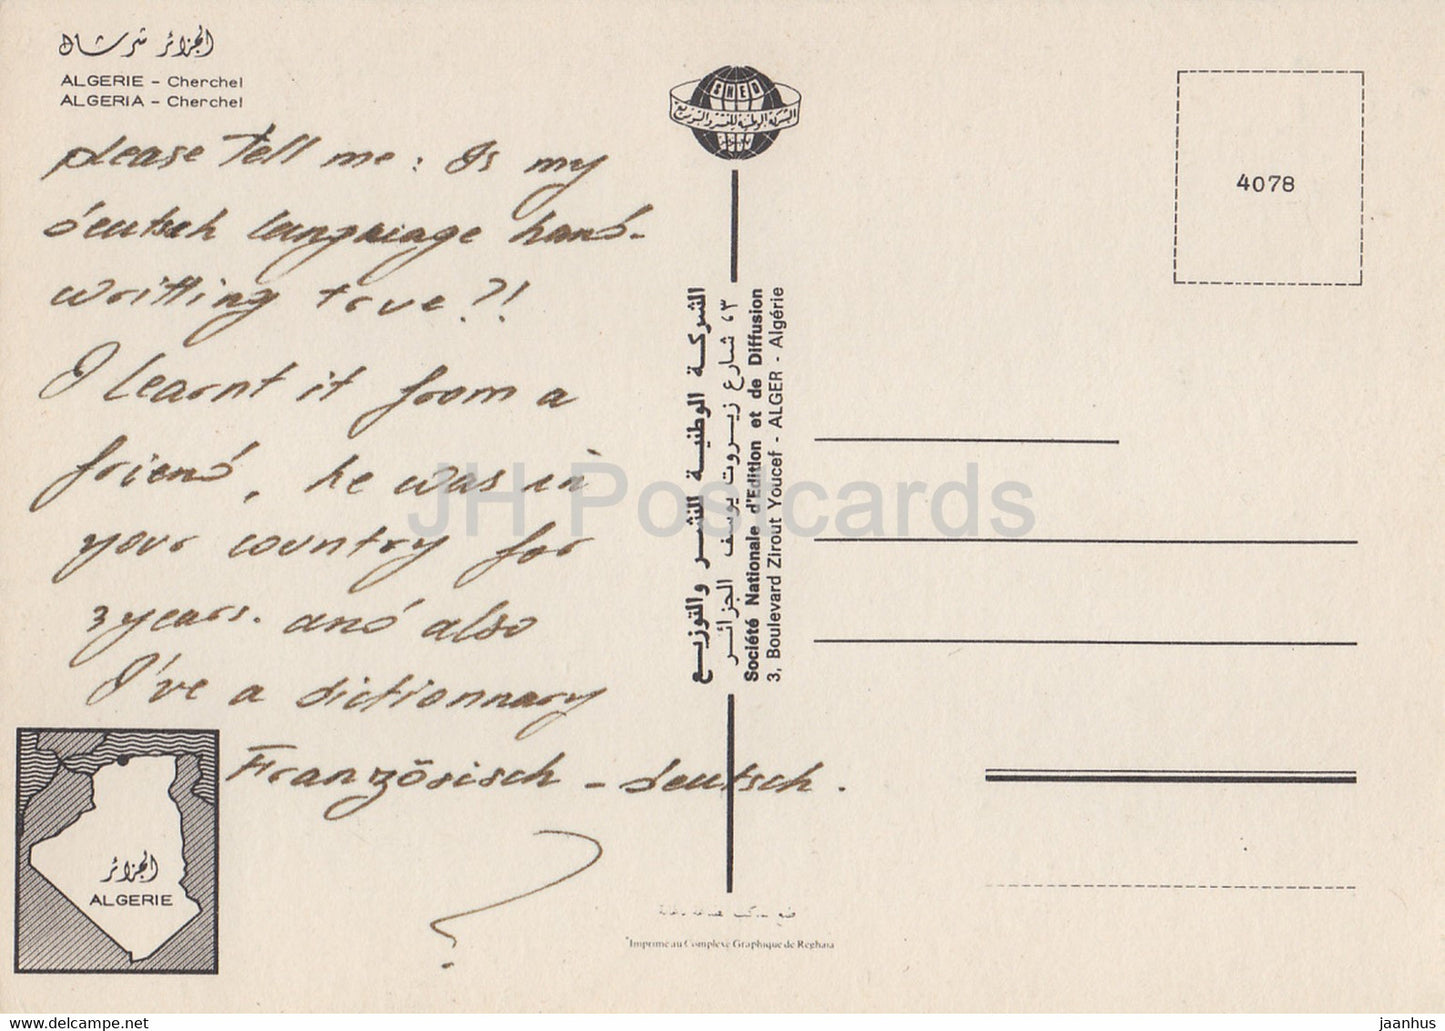 الجزائر شرشال
ALGERIE - Cherchel
ALGERIA - Cherchel
please tell me: Is my
deutsch language hand-
writting true?!
I learnt it from a
friend, he was in
your country for
3 years. and also
I've a dictionnary
Französisch - deutsch.
?
الجزائر
ALGERIE
SNED
الشركة الوطنية للنشر والتوزيع
الشركة الوطنية للنشر والتوزيع
٣، شارع زيروت يوسف الجزائر
Société Nationale d'Edition et de Diffusion
3, Boulevard Zirout Youcef - ALGER - Algérie
Imprimé au Complexe Graphique de Reghaia
4078
JH Postcards
www.delcampe.net
jaanhus